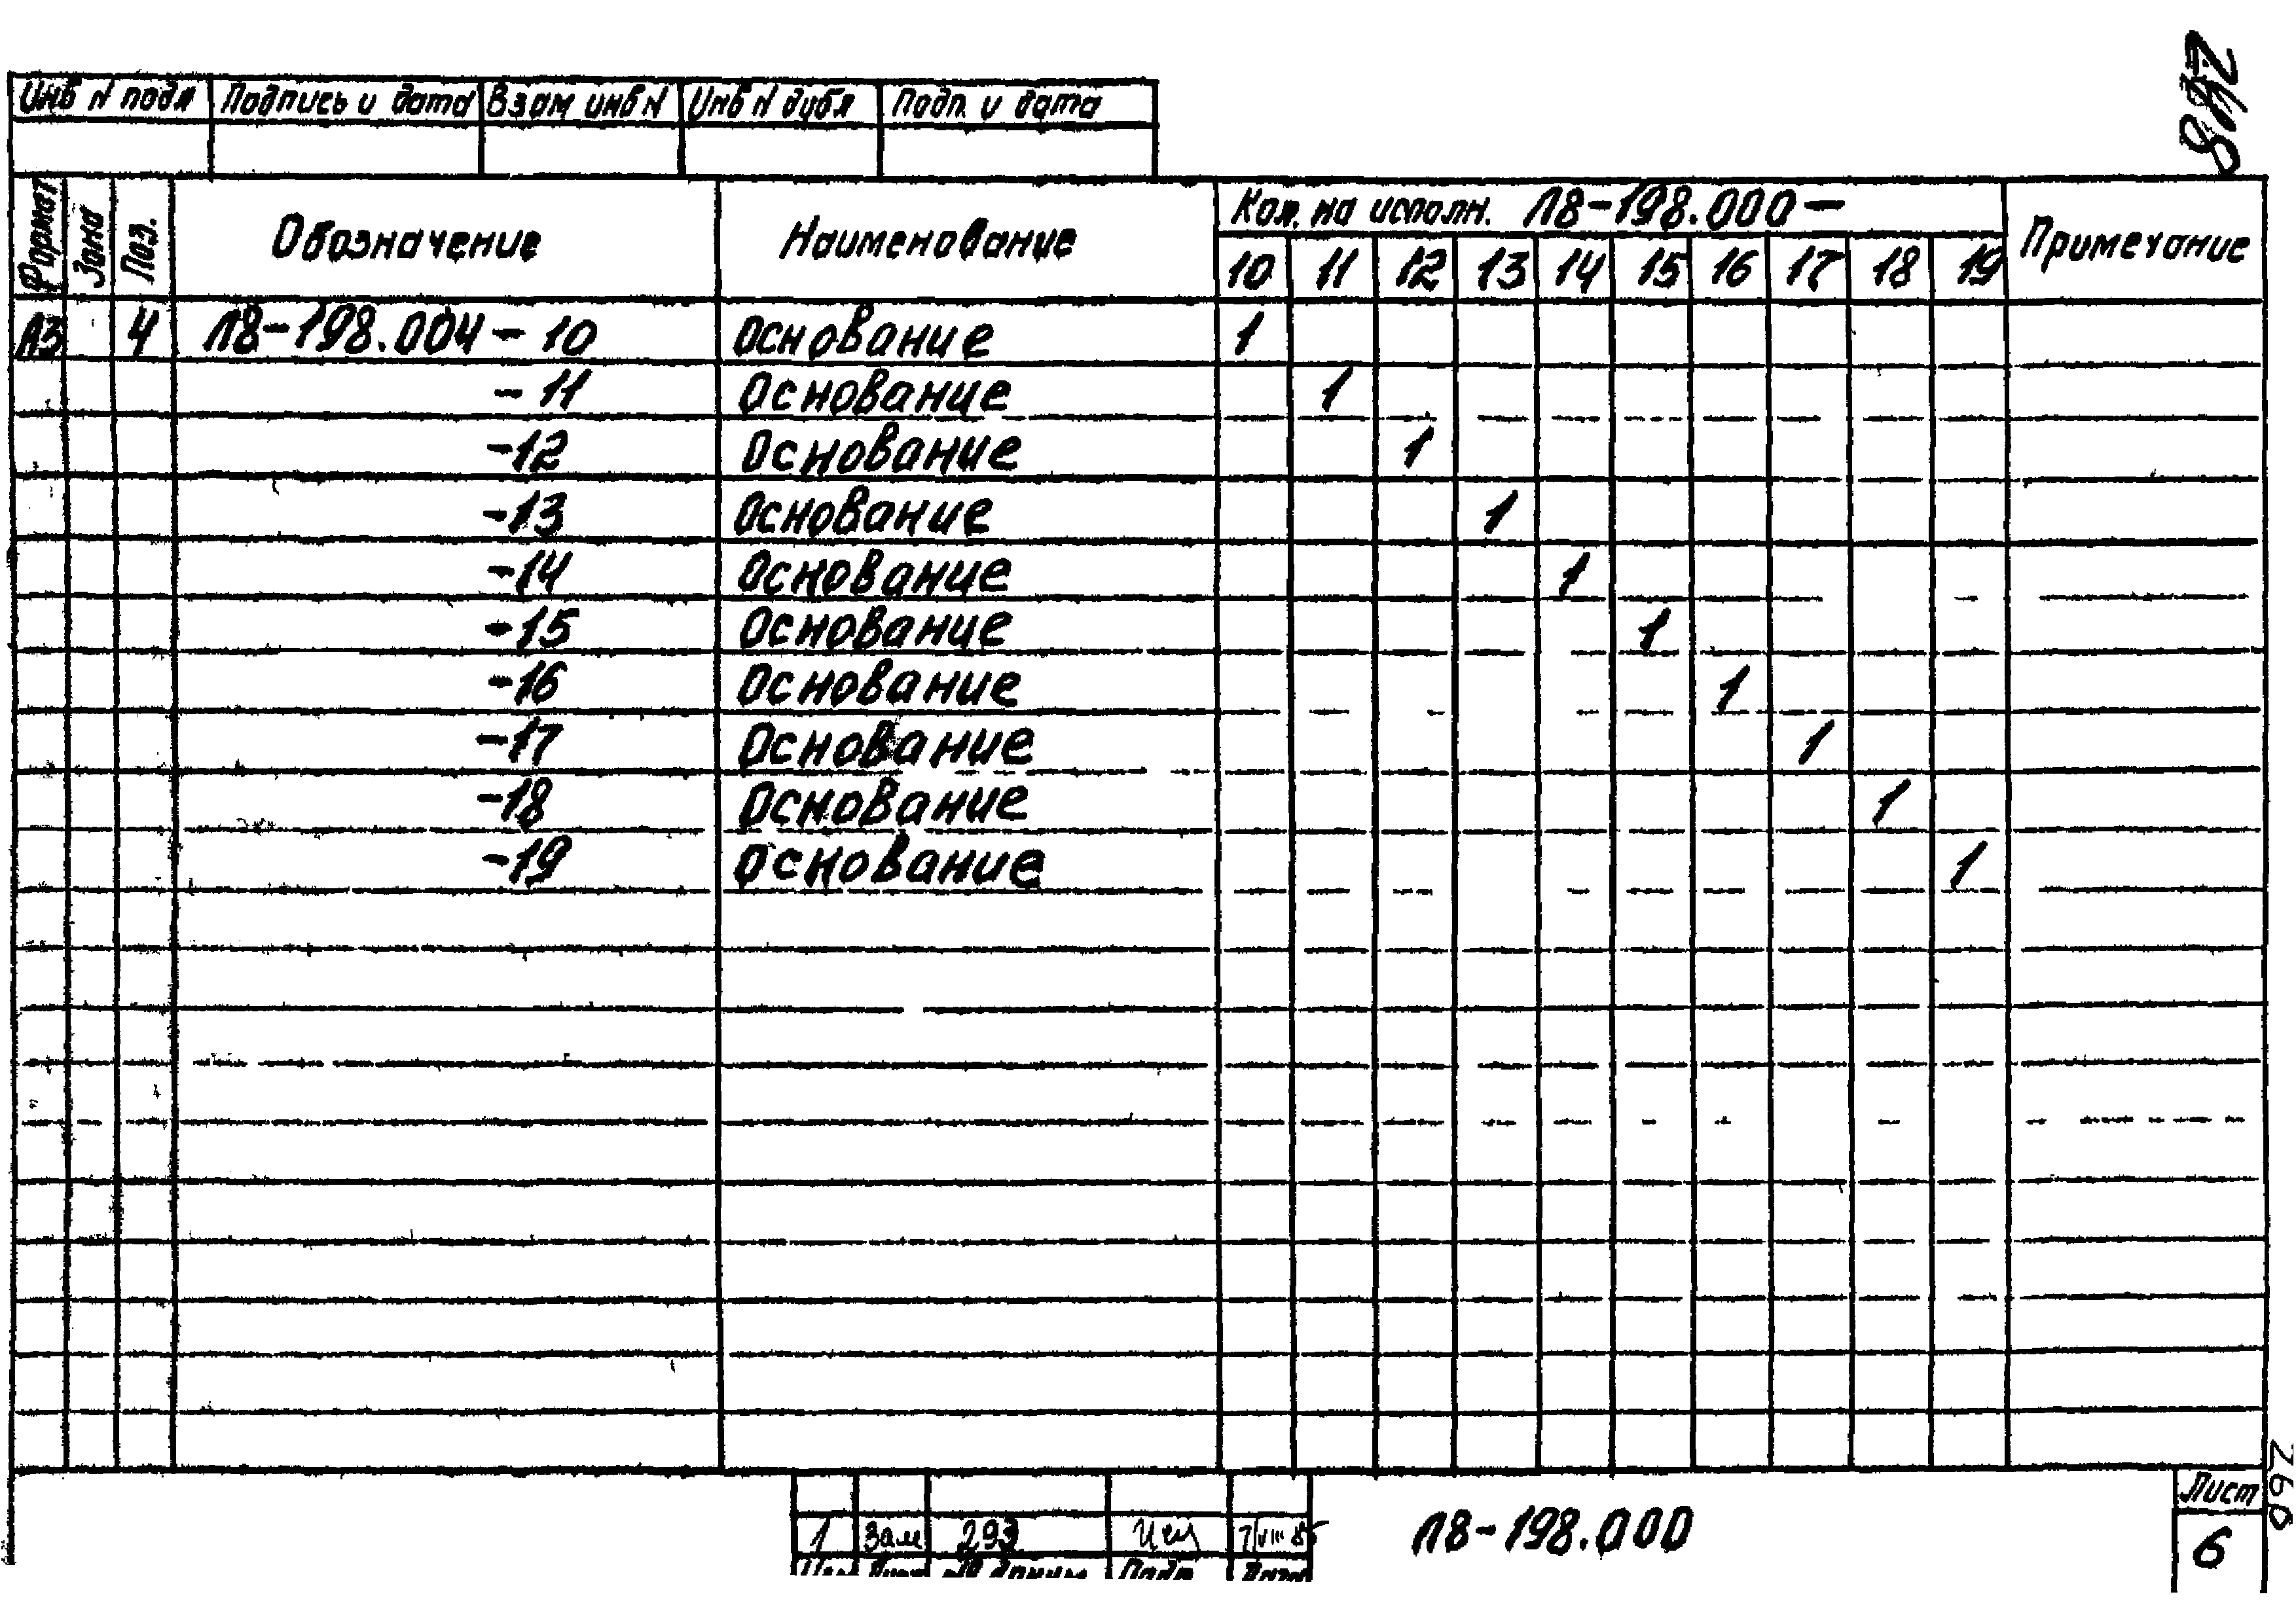 Инв N подл Подпись и дата Взам инв N Инв N дубл Подп. и дата
Формат Зона Поз. Обозначение Наименование Кол. на исполн. Л8-198.000- Примечание
10 11 12 13 14 15 16 17 18 19
А3 4 Л8-198.004-10 Основание 1
-11 Основание 1
-12 Основание 1
-13 Основание 1
-14 Основание 1
-15 Основание 1
-16 Основание 1
-17 Основание 1
-18 Основание 1
-19 Основание 1
Л8-198.000
Лист
1 Зам 293
6
260